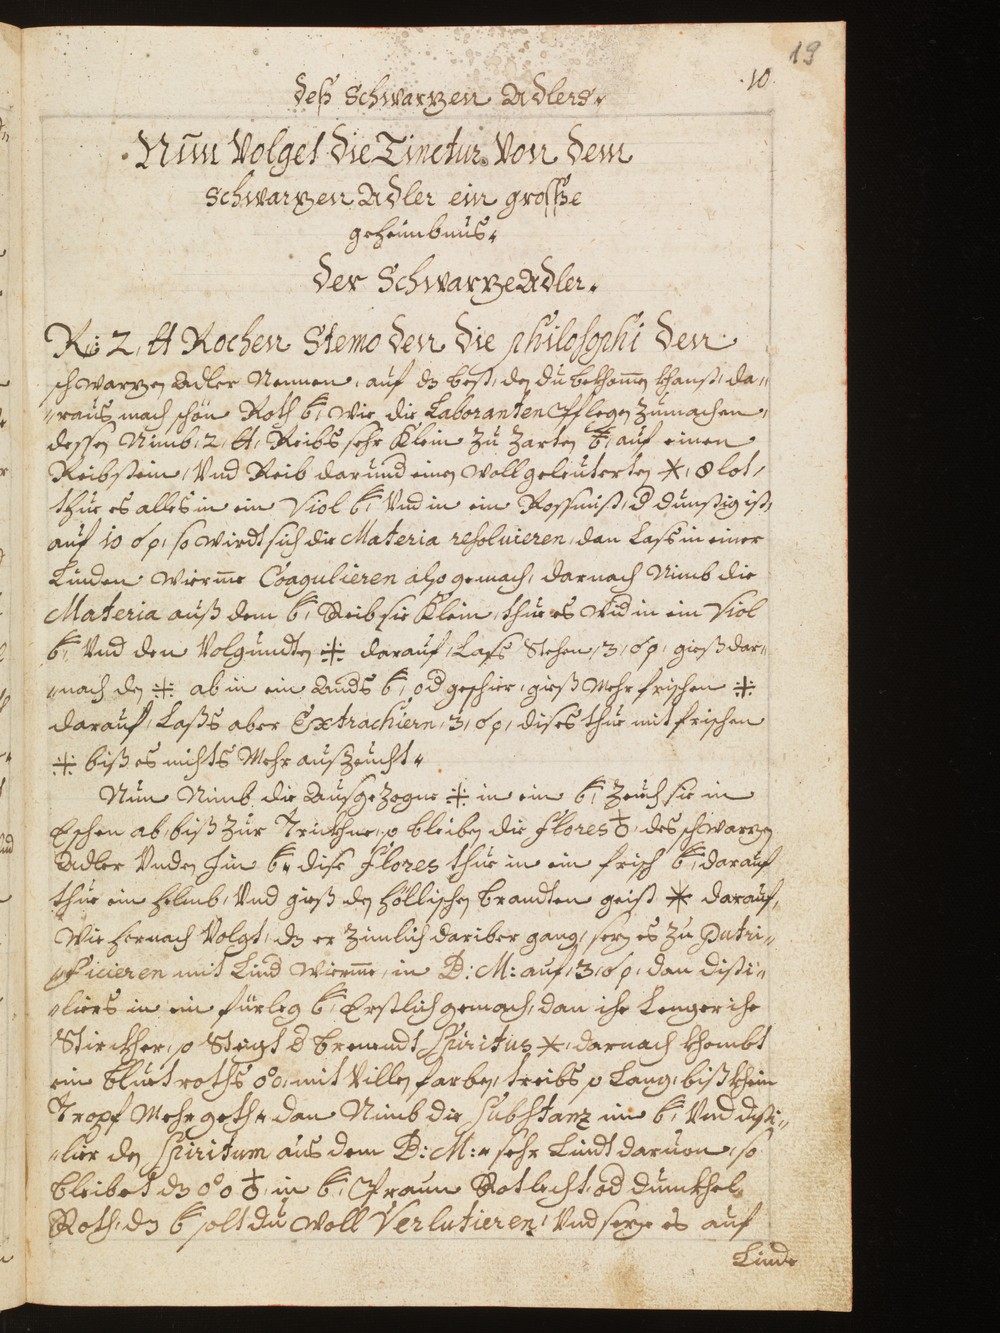 19
10
deß Schwarzen Adlers
Nŭn Volget die Tinctur Von dem
Schwarzen Adler ein grosse
geheimbnus
Der Schwarze Adler.
R 2 ℔ Rochen Stemo den die philosophi den
schwarzen Adler Nennen, auf dz best, den du bekhomen khanst, da=
=raus mach schön Roth, wie die Laboranten Pflegen Zumachen,
dessen Nimb, 2 ℔, Reibs sehr Klein Zu Zarten auf einen
Reibstein, Vnd Reib darund einen woll geleuterten *, 8 lot,
thue es alles in ein Viol Vnd in ein Rossmist, dünstig ist,
auf 10 so wirdt sich die Materia resoluieren, dan Lass in einer
Linden Wierme Coagulieren also gemach, darnach Nimb die
Materia auß dem Reib sie Klein, thue es in ein Viol
Vnd den darauf, Lass Stehen, 3, gieß dar=
=nach den ab in ein Anders geschier, gieß Mehr frischen
darauf, Lasßs aber Extrachiern, 3, dises thue mit frischen
biß es nichts Mehr auszeucht
Nŭn Nimb die Ausgezogne in ein Zeuch sie in
Eschen ab, biß Zur Trickhne, so bleiben die Flores des schwarzen
Adler Vnden Im dise Flores thue in ein frisch darauf
thue ein Helmb, Vnd gieß den höllischen brandten geist * darauf,
Wie hernach Volgt, dz er Zimlich dariber gang, sez es Zu Putri=
=ficieren mit Lind Wierme, in B: M: auf, 3, dan disti=
=liers in ein fürleg Erstlich gemach, dan ihe Lenger ihe
Stirckher, so Steigt d brenendt Spiritus *, darnach khombt
ein bluet roths mit Villen farben, treibs so Lang, biß khein
Tropf Mehr geth dan Nimb die Substanz im Vnd disti=
=lier den Spiritum aus dem B: M: sehr Lindt daruon, so
bleibet dz in Praun Rotlecht, od dunckhel
Roth, dz solt du woll Verlutieren, Vnd seze es auf
Linde